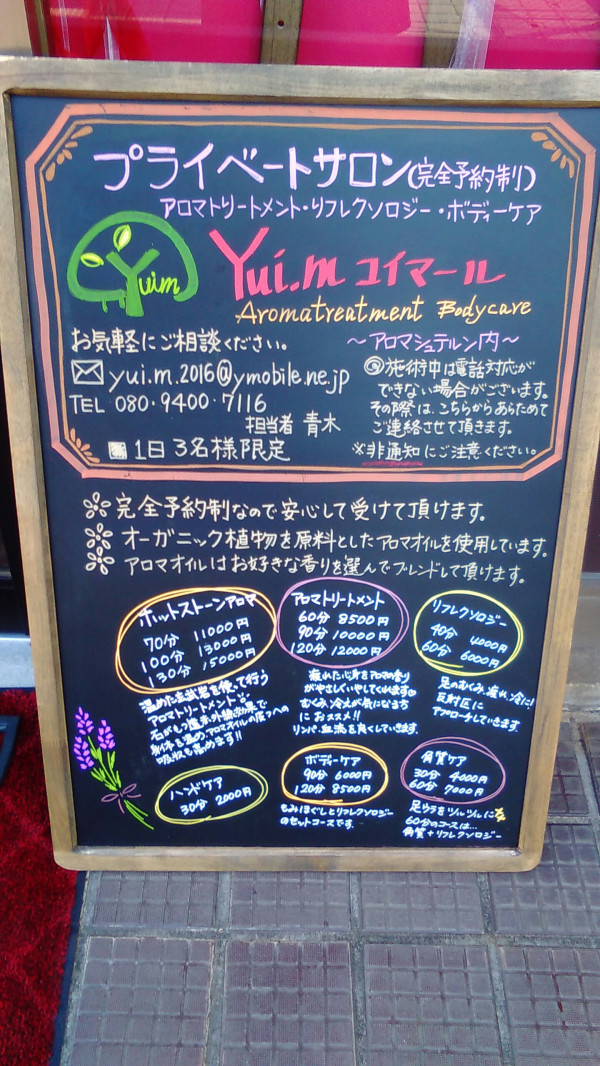 プライベートサロン(完全予約制)
アロマトリートメント・リフレクソロジー・ボディーケア
Yuim
Yui.m ユイマール
Aromatreatment Bodycare
お気軽にご相談ください。
yui.m.2016@ymobile.ne.jp
TEL 080・9400・7116
担当者 青木
1日3名様限定
〜アロマシュテルン内〜
◎施術中は電話対応が
できない場合がございます。
その際は、こちらからあらためて
ご連絡させて頂きます。
※非通知にご注意ください。
完全予約制なので安心して受けて頂けます。
オーガニック植物を原料としたアロマオイルを使用しています。
アロマオイルはお好きな香りを選んでブレンドして頂けます。
ホットストーンアロマ
70分 11000円
100分 13000円
130分 15000円
温めた玄武岩を使って行う
アロマトリートメント
石がもつ遠赤外線効果で
身体を温め、アロマオイルの皮フへの
吸収も高めます!!
アロマトリートメント
60分 8500円
90分 10000円
120分 12000円
疲れた心身をアロマの香り
がやさしくいやしてくれます
むくみ、冷えが気になる方
におススメ!!
リンパ・血流も良くしていきます。
リフレクソロジー
40分 4000円
60分 6000円
足のむくみ、疲れ、冷えに!
反射区に
アプローチしていきます。
ハンドケア
30分 2000円
ボディーケア
90分 6000円
120分 8500円
もみほぐしとリフレクソロジー
のセットコースです。
角質ケア
30分 4000円
60分 7000円
足うらをツルツルに
60分のコースは…
角質+リフレクソロジー